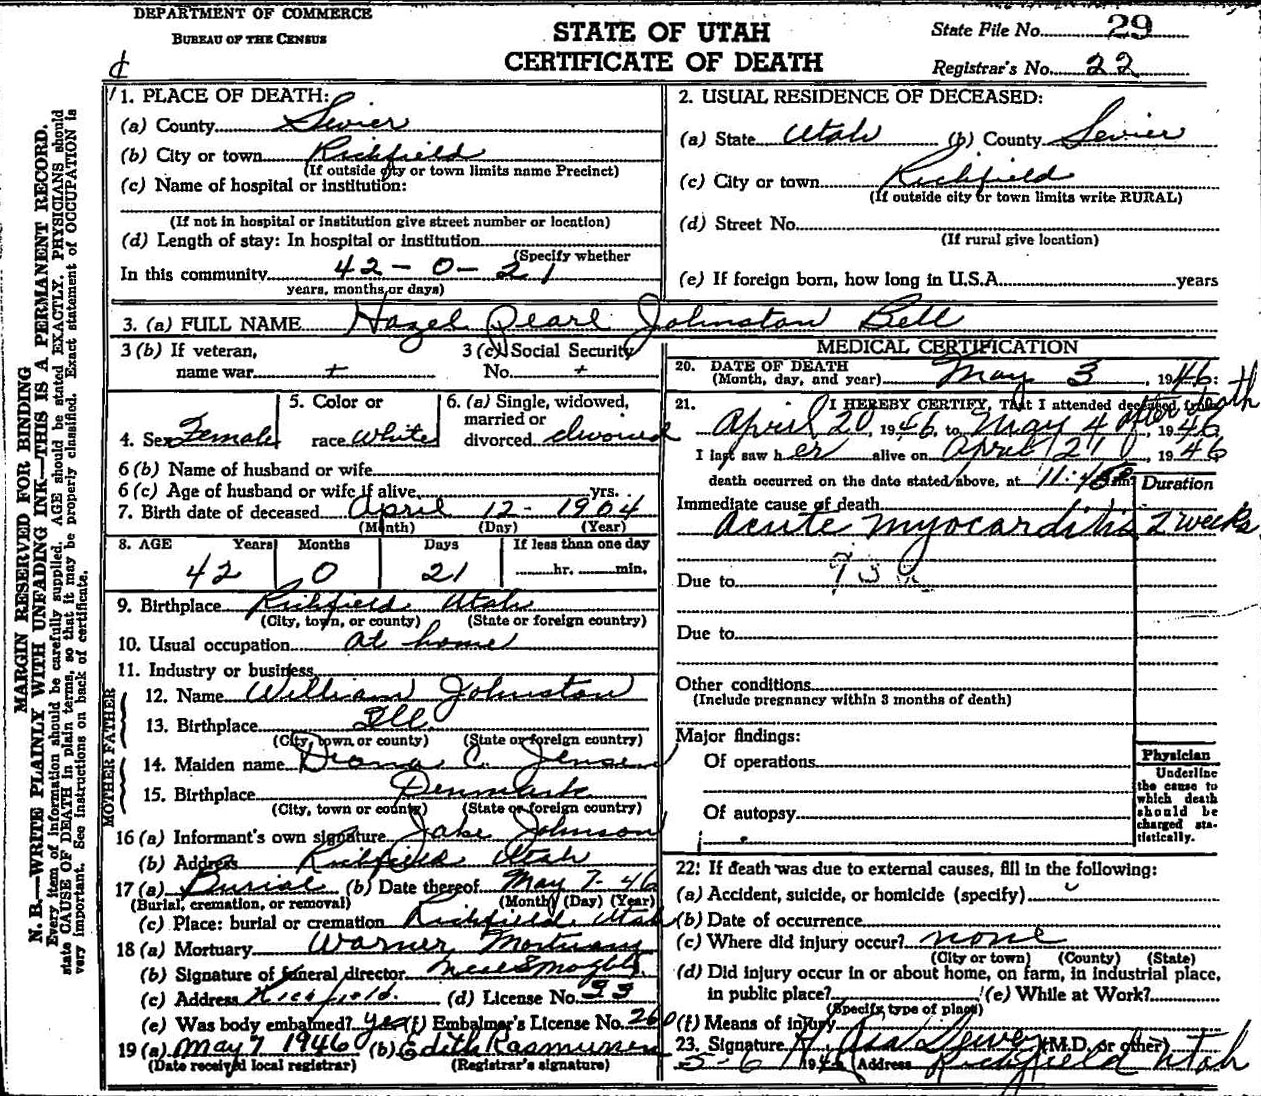 DEPARTMENT OF COMMERCE
BUREAU OF THE CENSUS
STATE OF UTAH
CERTIFICATE OF DEATH
State File No. 29
Registrar's No. 22
MARGIN RESERVED FOR BINDING
N. B.—WRITE PLAINLY WITH UNFADING INK—THIS IS A PERMANENT RECORD.
Every item of information should be carefully supplied. AGE should be stated EXACTLY. PHYSICIANS should
state CAUSE OF DEATH in plain terms, so that it may be properly classified. Exact statement of OCCUPATION is
very important. See instructions on back of certificate.
1. PLACE OF DEATH:
(a) County Sevier
(b) City or town Richfield
(If outside city or town limits name Precinct)
(c) Name of hospital or institution:
(If not in hospital or institution give street number or location)
(d) Length of stay: In hospital or institution
(Specify whether
In this community 42-0-21
years, months, or days)
2. USUAL RESIDENCE OF DECEASED:
(a) State Utah (b) County Sevier
(c) City or town Richfield
(If outside city or town limits write RURAL)
(d) Street No.
(If rural give location)
(e) If foreign born, how long in U.S.A. years
3. (a) FULL NAME Hazel Pearl Johnston Bell
3 (b) If veteran, name war +
3 (c) Social Security No. +
4. Sex Female
5. Color or race White
6. (a) Single, widowed, married or divorced divorced
6 (b) Name of husband or wife
6 (c) Age of husband or wife if alive yrs.
7. Birth date of deceased April 12- 1904
(Month) (Day) (Year)
8. AGE Years Months Days If less than one day
42 0 21 hr. min.
9. Birthplace Richfield Utah
(City, town, or county) (State or foreign country)
10. Usual occupation at home
11. Industry or business
FATHER
12. Name William Johnston
13. Birthplace Ill.
(City, town or county) (State or foreign country)
MOTHER
14. Maiden name Diona C. Jensen
15. Birthplace Denmark
(City, town or county) (State or foreign country)
16 (a) Informant's own signature Jake Johnson
(b) Address Richfield Utah
17 (a) Burial (b) Date thereof May 7-46
(Burial, cremation, or removal) (Month) (Day) (Year)
(c) Place: burial or cremation Richfield, Utah
18 (a) Mortuary Warner Mortuary
(b) Signature of funeral director
(c) Address Richfield. (d) License No. 93
(e) Was body embalmed? yes (f) Embalmer's License No. 260
19 (a) May 7 1946 (b) Edith Rasmussen
(Date received local registrar) (Registrar's signature)
MEDICAL CERTIFICATION
20. DATE OF DEATH
(Month, day, and year) May 3, 1946:
21. I HEREBY CERTIFY, That I attended deceased from
April 20, 1946, to May 4 after death, 1946
I last saw her alive on April 21, 1946
death occurred on the date stated above, at 11:45 m.
Duration
Immediate cause of death
acute myocarditis 2 weeks
Due to 93
Due to
Other conditions
(Include pregnancy within 3 months of death)
Major findings:
Of operations
Of autopsy
Physician
Underline
the cause to
which death
should be
charged sta-
tistically.
22. If death was due to external causes, fill in the following:
(a) Accident, suicide, or homicide (specify)
(b) Date of occurrence
(c) Where did injury occur? none
(City or town) (County) (State)
(d) Did injury occur in or about home, on farm, in industrial place,
in public place? (e) While at Work?
(Specify type of place)
(f) Means of injury
23. Signature (M.D. or other)
5-6 1946 Address Richfield Utah